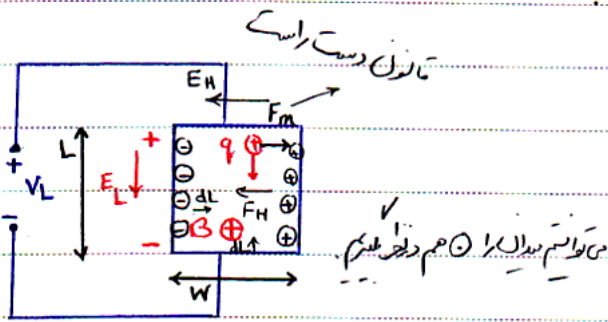 قانون دست راست
E_H
F_m
+
V_L
-
L
E_L
+
-
q
+
F_H
dL
B
dL
W
می توانستیم میدان را ⊙ هم در نظر بگیریم.